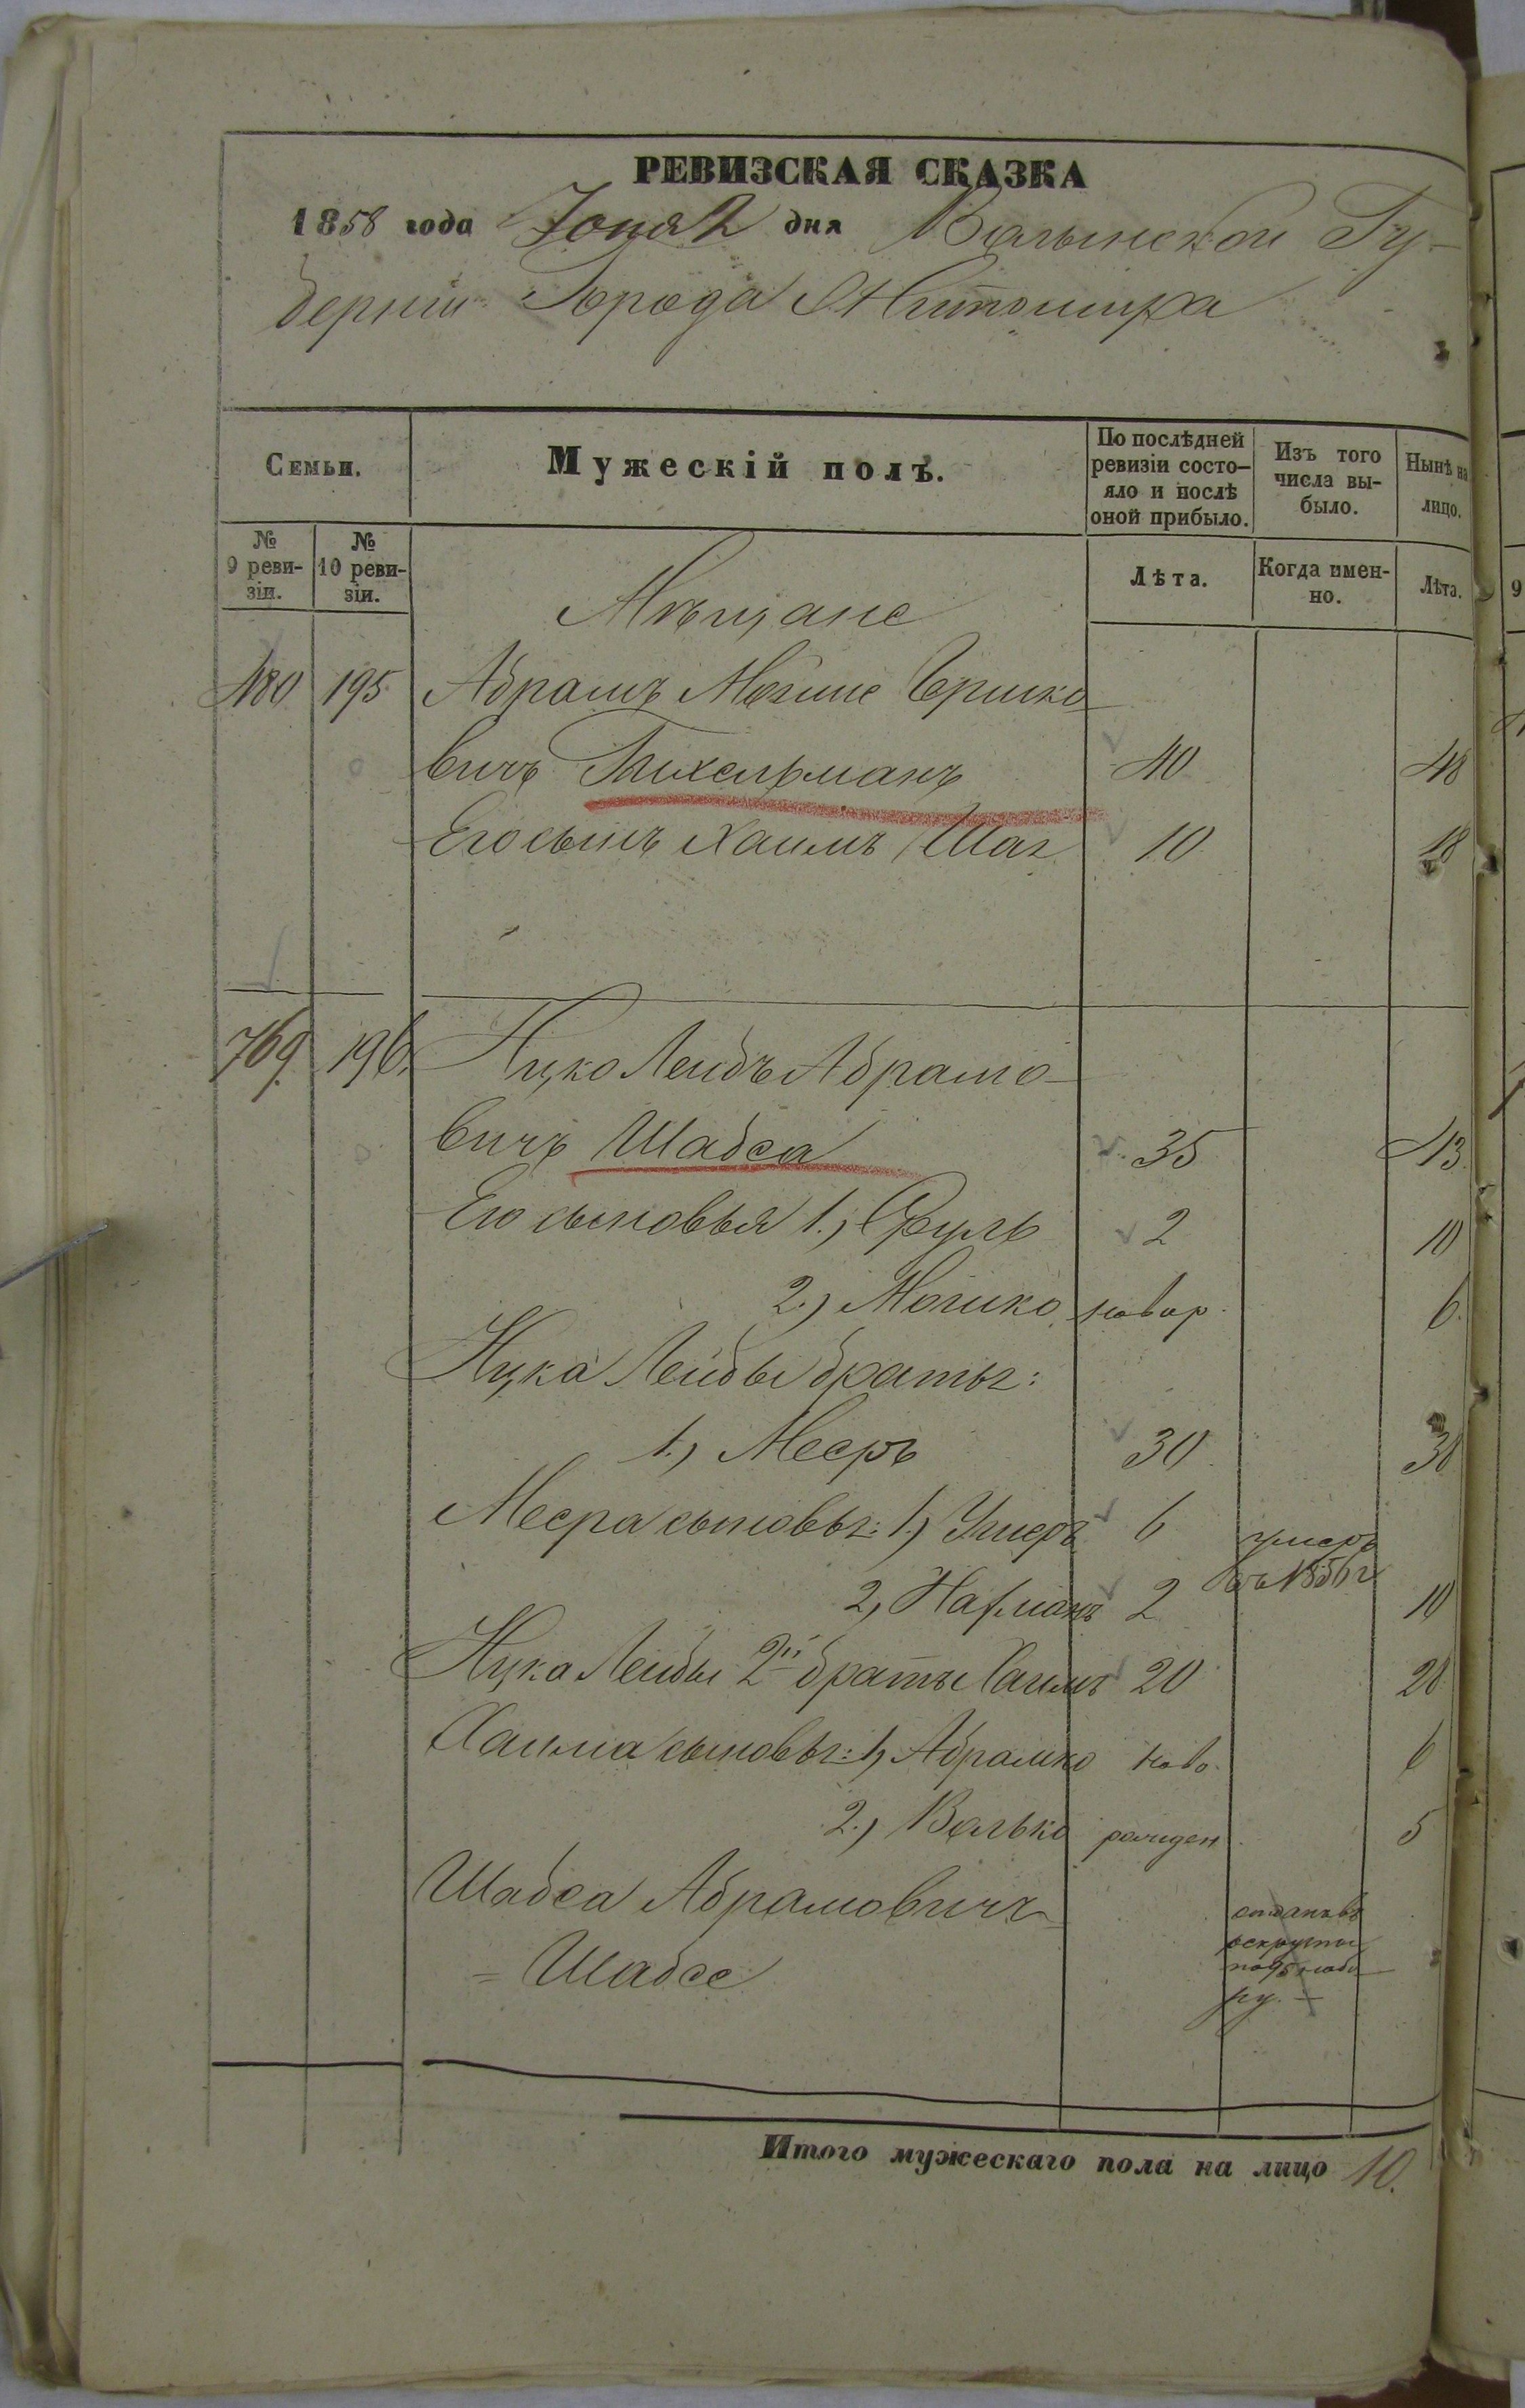 РЕВИЗСКАЯ СКАЗКА
1858 года Іюня 2 дня Волынской Гу-
берніи Города Житомира
Семьи.
Мужескій полъ.
По послѣдней ревизіи состо-яло и послѣ оной прибыло.
Изъ того числа вы-было.
Нынѣ на лицо.
№ 9 реви-зіи.
№ 10 реви-зіи.
Лѣта.
Когда имен-но.
Лѣта.
Мѣщане
480 195 Абрамъ Мошие Ершко
вичъ Тихельманъ 40 48
Его сынъ Хаимъ 10 18
769 196. Ицко Лейбъ Абрамо-
вичъ Шабса 35 43
Его сыновья 1.) Сруль 2 10
2.) Мошко новор. 6.
Ицка Лейбы братья:
1.) Мееръ 30 38
Меера сыновья: 1.) Ушеръ 6 умеръ
въ 1856 г
2, Нафманъ 2 10
Ицка Лейбы 2й братъ Хаимъ 20 28
Хаима сыновья: 1, Абрамко ново- 6
2.) Волько рожден 5
Шабса Абрамовичъ отданъ въ
= Шабсе рекруты
по набо
ру.
Итого мужескаго пола на лицо 10.